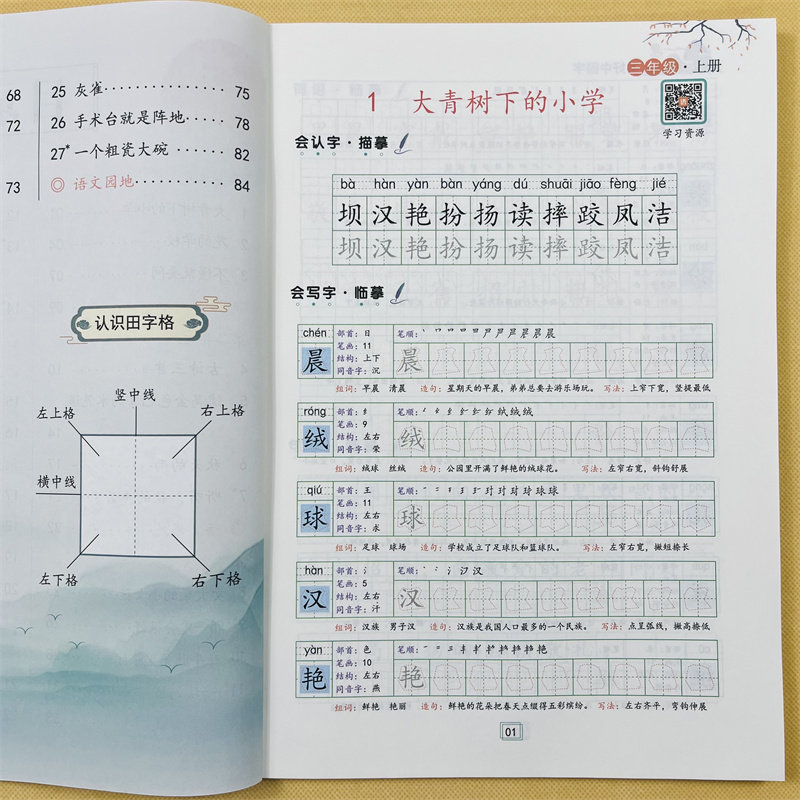 68
72
73
25 灰雀 75
26 手术台就是阵地 78
27* 一个粗瓷大碗 82
◎ 语文园地 84
认识田字格
竖中线
左上格 右上格
横中线
左下格 右下格
三年级·上册
1 大青树下的小学
学习资源
会认字·描摹
bà hàn yàn bàn yáng dú shuāi jiāo fèng jié
坝汉艳扮扬读摔跤凤洁
坝汉艳扮扬读摔跤凤洁
会写字·临摹
chén
晨
部首：日
笔画：11
结构：上下
同音字：沉
笔顺：
晨
组词：早晨 清晨 造句：星期天的早晨，弟弟总要去游乐场玩。 写法：上窄下宽，竖提最低
róng
绒
部首：纟
笔画：9
结构：左右
同音字：荣
笔顺：
绒
组词：绒球 丝绒 造句：公园里开满了鲜艳的绒球花。 写法：左窄右宽，斜钩舒展
qiú
球
部首：王
笔画：11
结构：左右
同音字：求
笔顺：
球
组词：足球 球场 造句：学校成立了足球队和篮球队。 写法：左窄右宽，撇短捺长
hàn
汉
部首：氵
笔画：5
结构：左右
同音字：汗
笔顺：
汉
组词：汉族 男子汉 造句：汉族是我国人口最多的一个民族。 写法：点呈弧线，撇高捺低
yàn
艳
部首：色
笔画：10
结构：左右
同音字：燕
笔顺：
艳
组词：鲜艳 艳丽 造句：鲜艳的花朵把春天点缀得五彩缤纷。 写法：左右齐平，弯钩伸展
01